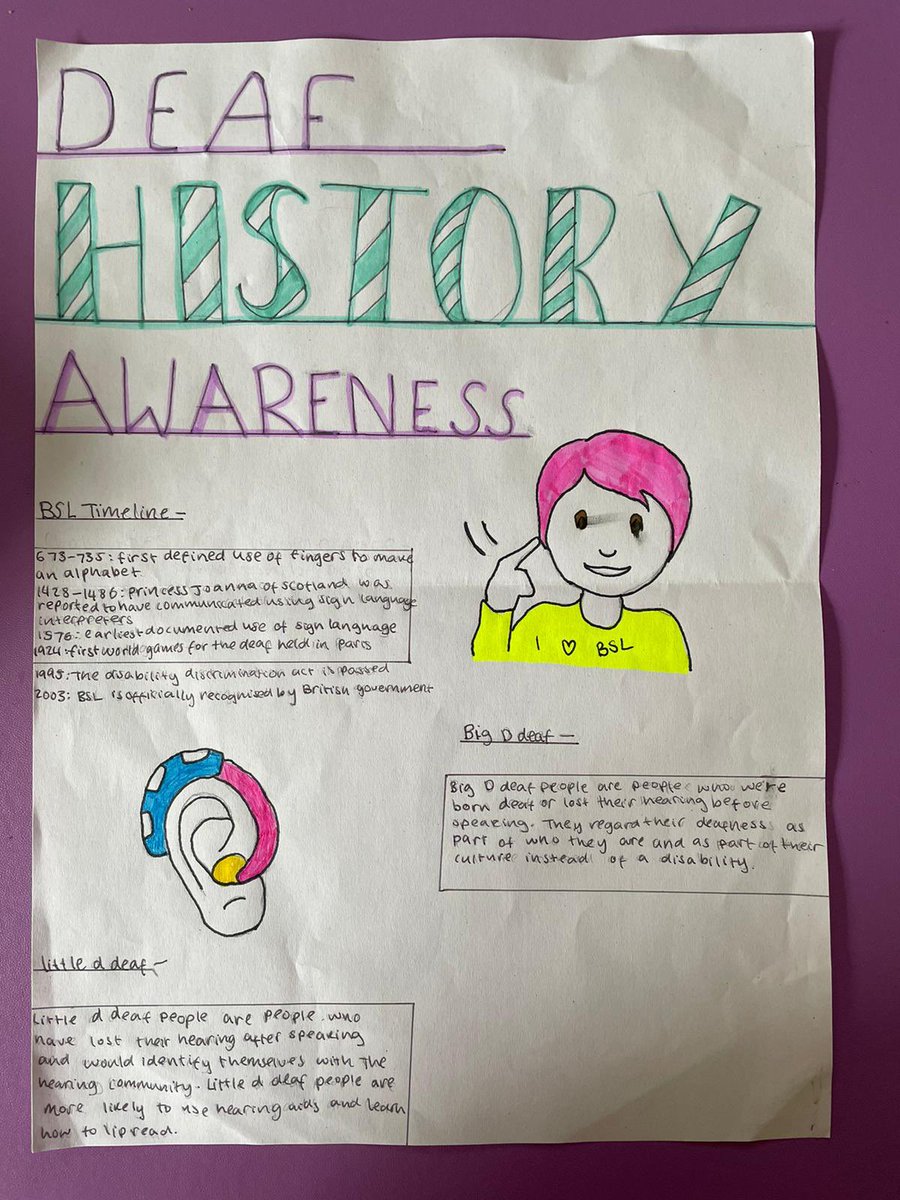 DEAF
HISTORY
AWARENESS
BSL Timeline -
673-735: first defined use of fingers to make
an alphabet
1428-1486: princess Joanna of scotland was
reported to have communicated using sign language
interpreters
1576: earliest documented use of sign language
1924: first world games for the deaf held in paris
1995: The disability discrimination act is passed
2003: BSL is officially recognised by British government
I ♡ BSL
Big D deaf -
Big D deaf people are people who we're
born deaf or lost their hearing before
speaking. They regard their deafness as
part of who they are and as part of their
culture instead of a disability.
little d deaf -
Little d deaf people are people who
have lost their hearing after speaking
and would identify themselves with the
hearing community. Little d deaf people are
more likely to use hearing aids and learn
how to lipread.